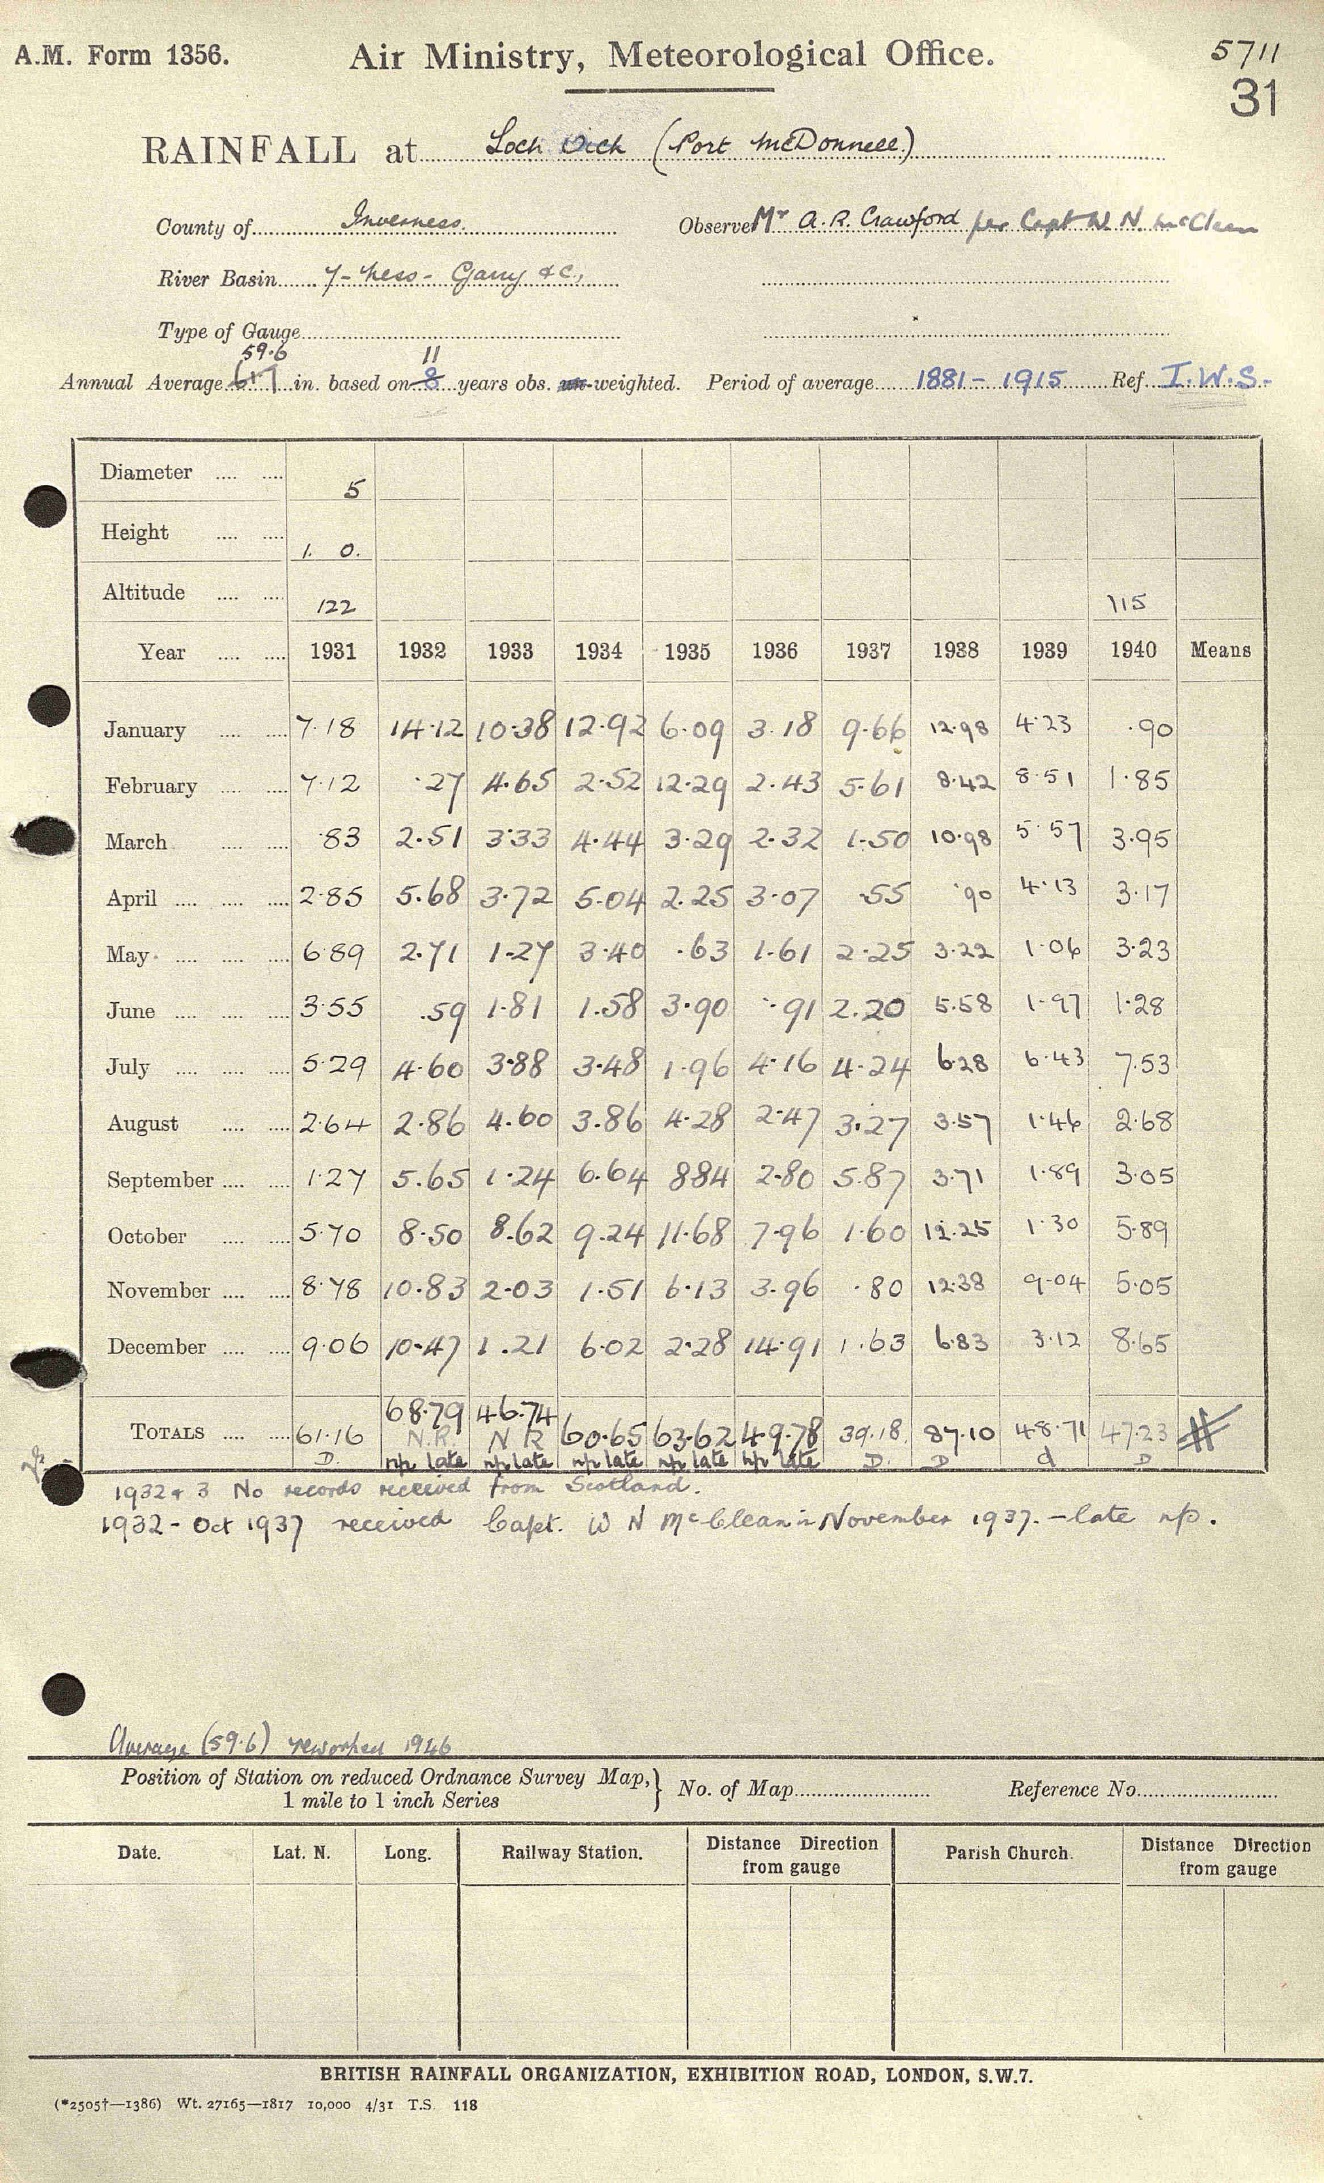 A.M. Form 1356. Air Ministry, Meteorological Office. 5711
31
RAINFALL at Loch Oich (Port McDonnell.)
County of Inverness. Observer Mr A. R. Crawford per Capt W. N. McClean
River Basin 7 - Ness - Garry &c.,
Type of Gauge
59.6 11
Annual Average 61.7 in. based on 8 years obs. un-weighted. Period of average 1881 - 1915 Ref. I.W.S.
Diameter 5
Height 1. 0.
Altitude 122 115
Year 1931 1932 1933 1934 1935 1936 1937 1938 1939 1940 Means
January 7.18 14.12 10.38 12.92 6.09 3.18 9.66 12.98 4.23 .90
February 7.12 .27 4.65 2.52 12.29 2.43 5.61 8.42 8.51 1.85
March .83 2.51 3.33 4.44 3.29 2.32 1.50 10.98 5.57 3.95
April 2.85 5.68 3.72 5.04 2.25 3.07 .55 .90 4.13 3.17
May 6.89 2.71 1.27 3.40 .63 1.61 2.25 3.22 1.06 3.23
June 3.55 .59 1.81 1.58 3.90 .91 2.20 5.58 1.97 1.28
July 5.29 4.60 3.88 3.48 1.96 4.16 4.24 6.28 6.43 7.53
August 2.64 2.86 4.60 3.86 4.28 2.47 3.27 3.57 1.46 2.68
September 1.27 5.65 1.24 6.64 8.84 2.80 5.87 3.71 1.89 3.05
October 5.70 8.50 8.62 9.24 11.68 7.96 1.60 12.25 1.30 5.89
November 8.78 10.83 2.03 1.51 6.13 3.96 .80 12.38 9.04 5.05
December 9.06 10.47 1.21 6.02 2.28 14.91 1.63 6.83 3.12 8.65
TOTALS 61.16 68.79 46.74 60.65 63.62 49.78 39.18 87.10 48.71 47.23
N.R. N R
D. np late np late np late np late np late D. D d D
1932 & 3 No records received from Scotland.
1932 - Oct 1937 received Capt. W N McClean in November 1937. - late np.
Average (59.6) reworked 1946
Position of Station on reduced Ordnance Survey Map, } No. of Map Reference No.
1 mile to 1 inch Series
Date. Lat. N. Long. Railway Station. Distance Direction from gauge Parish Church. Distance Direction from gauge
BRITISH RAINFALL ORGANIZATION, EXHIBITION ROAD, LONDON, S.W.7.
(*2505†—1386) Wt. 27165—1817 10,000 4/31 T.S. 118